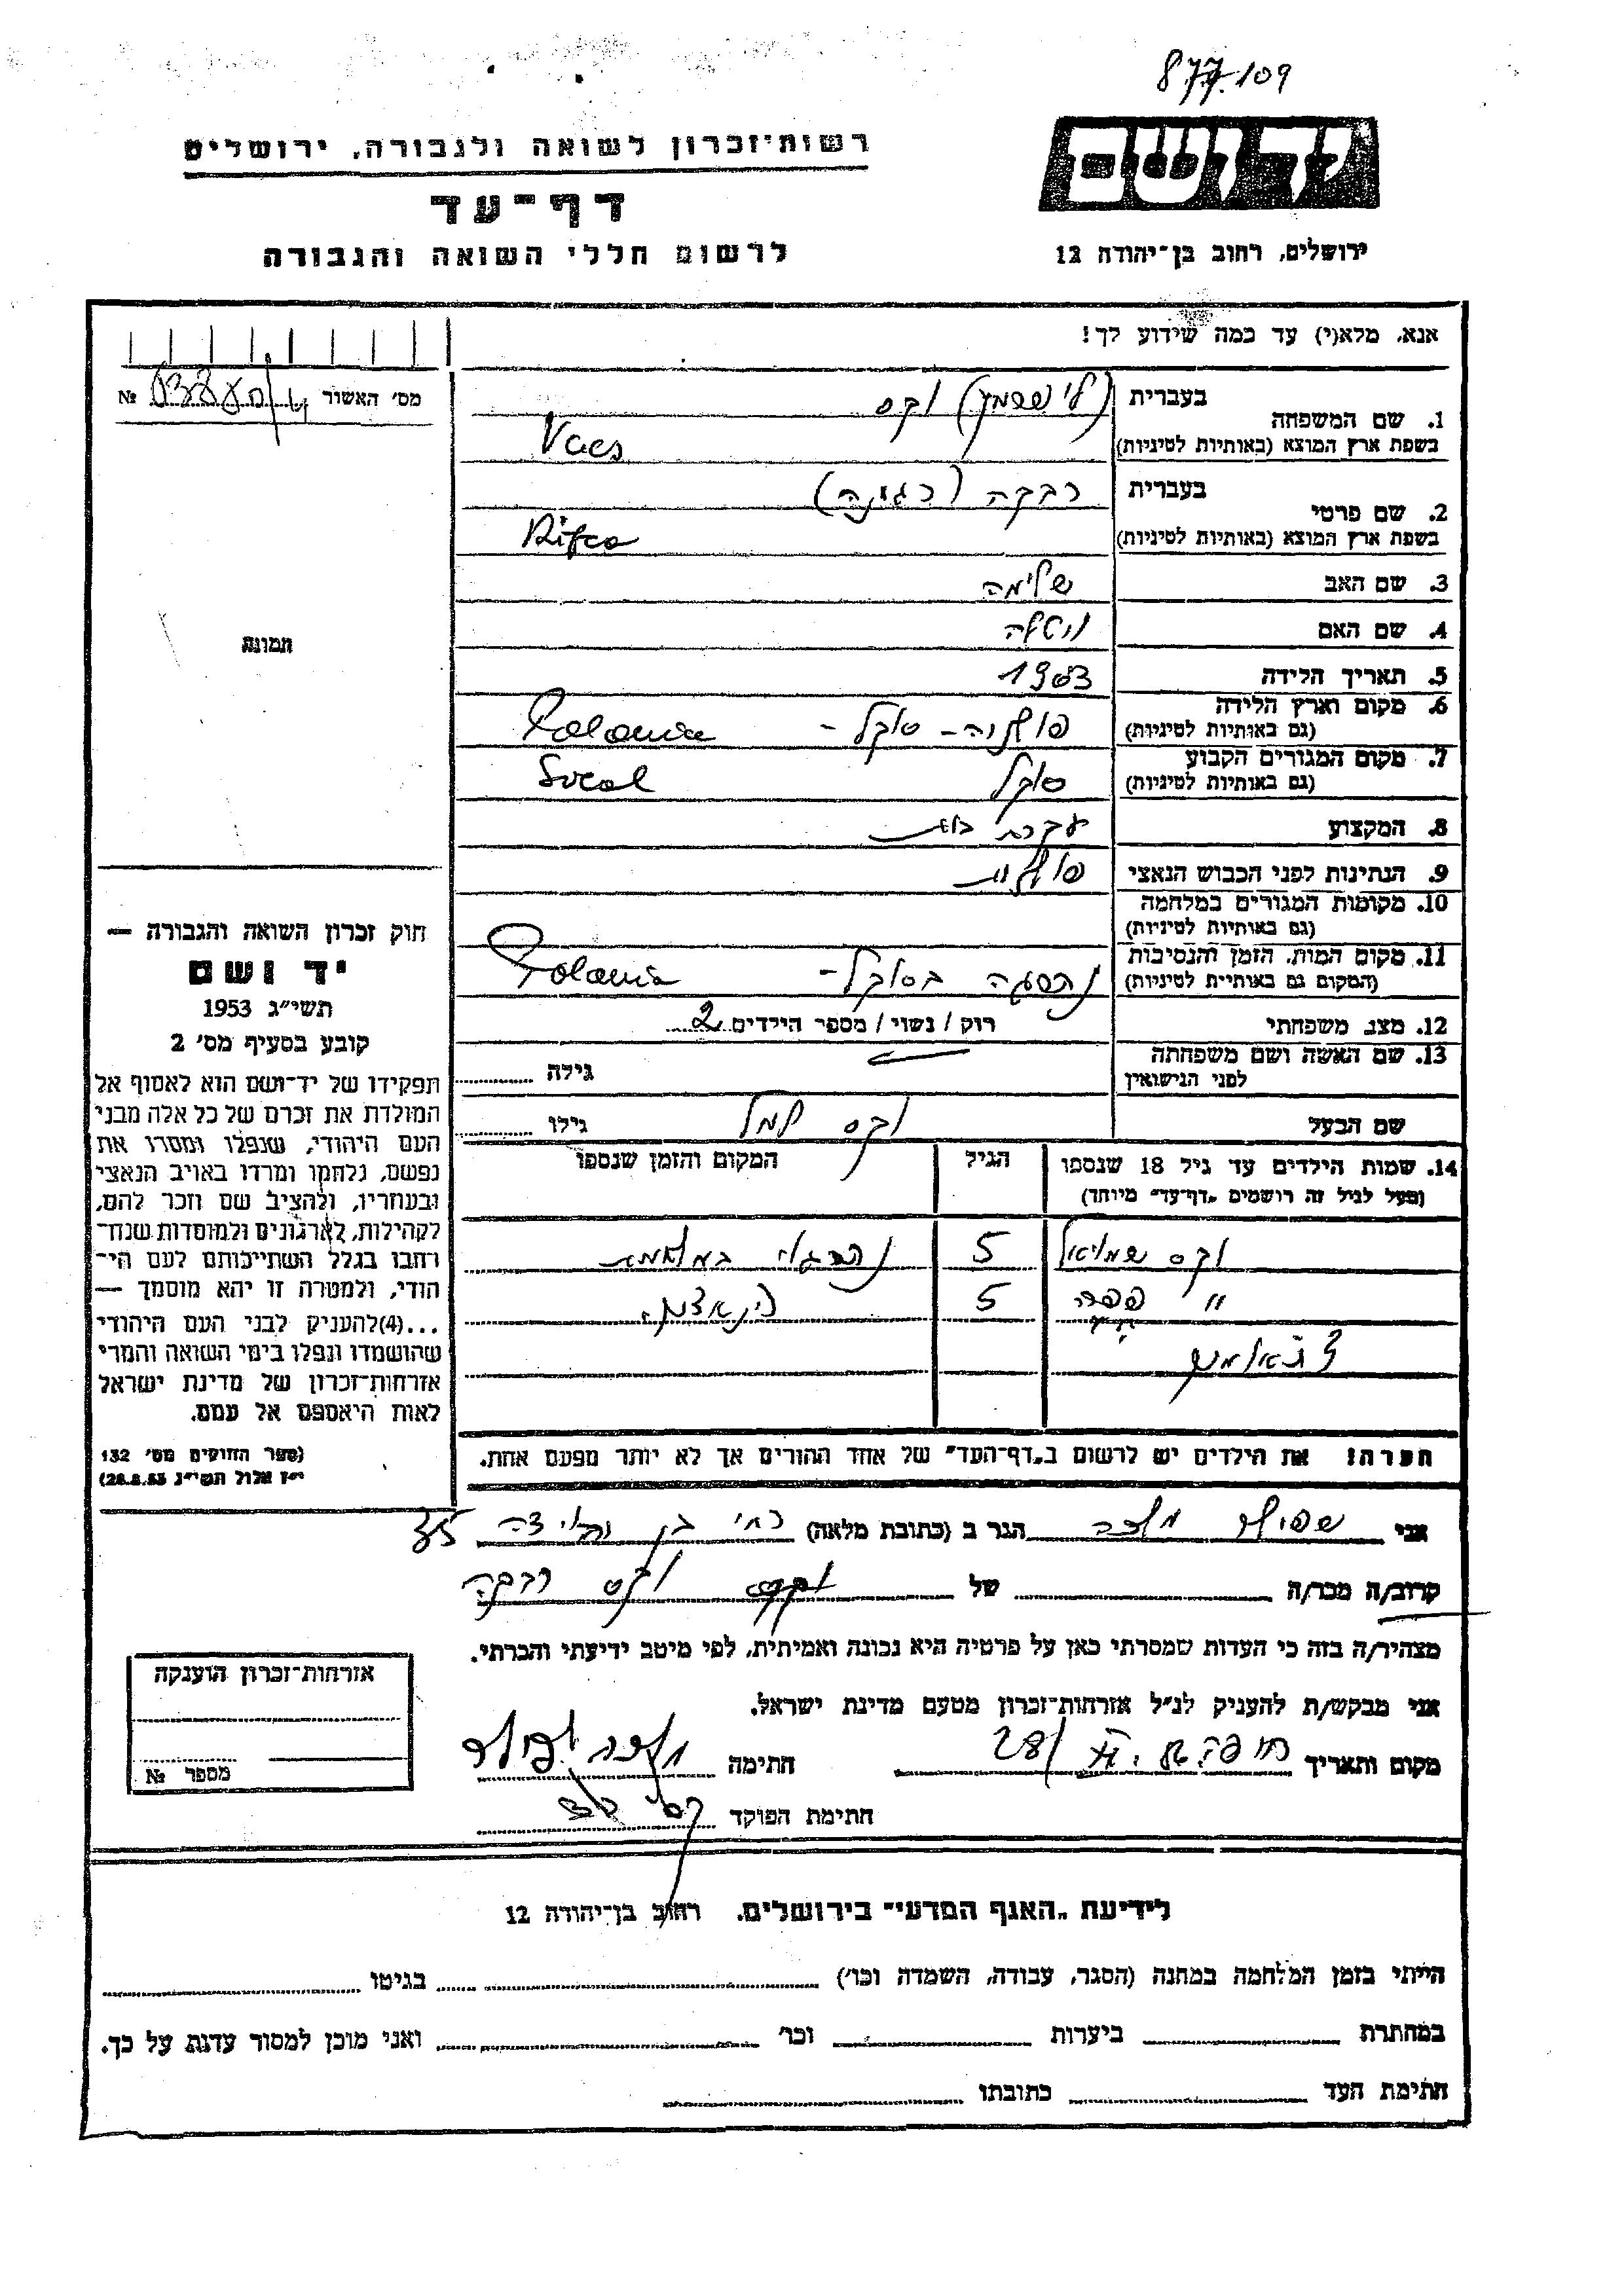 877.109
רשות־זכרון לשואה ולגבורה, ירושלים
יד ושם
דף־עד
לרשום חללי השואה והגבורה
ירושלים, רחוב בן־יהודה 12
אנא, מלא(י) עד כמה שידוע לך!
מס׳ האשור №
1. שם המשפחה בעברית (ליששמן) וקס
בשפת ארץ המוצא (באותיות לטיניות) Vacs
2. שם פרטי בעברית רבקה (רגינה)
בשפת ארץ המוצא (באותיות לטיניות) Rifca
3. שם האב שלימה
4. שם האם
תמונה
5. תאריך הלידה 1903
6. מקום וארץ הלידה (גם באותיות לטיניות) פולניה - סוקל - Polania
7. מקום המגורים הקבוע (גם באותיות לטיניות) סוקל Socal
8. המקצוע עקרת בית
9. הנתינות לפני הכבוש הנאצי פולנית
10. מקומות המגורים במלחמה (גם באותיות לטיניות)
11. מקום המות, הזמן והנסיבות (המקום גם באותיות לטיניות) נספתה בסוקל - Polania
12. מצב משפחתי רוק / נשוי / מספר הילדים 2
13. שם האשה ושם משפחתה לפני הנישואין גילה
שם הבעל וקס גילו
14. שמות הילדים עד גיל 18 שנספו הגיל המקום והזמן שנספו
(מעל לגיל זה רושמים „דף־עד״ מיוחד)
וקס שמואל 5 נהרגו
״ 5
הערה! את הילדים יש לרשום ב„דף־העד״ של אחד ההורים אך לא יותר מפעם אחת.
חוק זכרון השואה והגבורה —
יד ושם
תשי״ג 1953
קובע בסעיף מס׳ 2
תפקידו של יד־ושם הוא לאסוף אל
המולדת את זכרם של כל אלה מבני
העם היהודי, שנפלו ומסרו את
נפשם, נלחמו ומרדו באויב הנאצי
ובעוזריו, ולהציב שם וזכר להם,
לקהילות, לארגונים ולמוסדות שנח־
רחבו בגלל השתייכותם לעם הי־
הודי, ולמטרה זו יהא מוסמך —
...(4)להעניק לבני העם היהודי
שהושמדו ונפלו בימי השואה והמרי
אזרחות־זכרון של מדינת ישראל
לאות היאספם אל עמם.
(ספר החוקים מס׳ 132
י״ז אלול תשי״ג 28.8.53)
אני הגר ב (כתובת מלאה)
קרוב/ה מכר/ה של וקס רבקה
מצהיר/ה בזה כי העדות שמסרתי כאן על פרטיה היא נכונה ואמיתית, לפי מיטב ידיעתי והכרתי.
אני מבקש/ת להעניק לנ״ל אזרחות־זכרון מטעם מדינת ישראל.
מקום ותאריך חיפה חתימה
חתימת הפוקד
אזרחות־זכרון הוענקה
מספר №
לידיעת „האגף המדעי״ בירושלים, רחוב בן־יהודה 12
הייתי בזמן המלחמה במחנה (הסגר, עבודה, השמדה וכו׳) בגיטו
במחתרת ביערות וכו׳ ואני מוכן למסור עדות על כך.
חתימת העד כתובתו